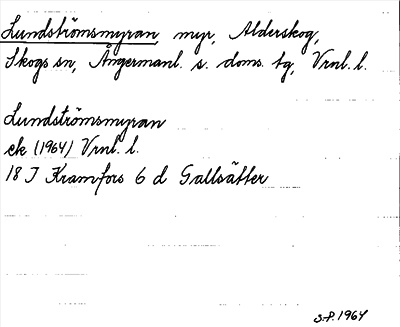 Lundströmsmyran, myr, Alderskog,
Skogs sn, Ångermanl. s. doms. tg, Vrnl. l.
Lundströmsmyran
ek (1964) Vrnl. l.
18 J Kramfors 6 d Gallsätter
S.P. 1964